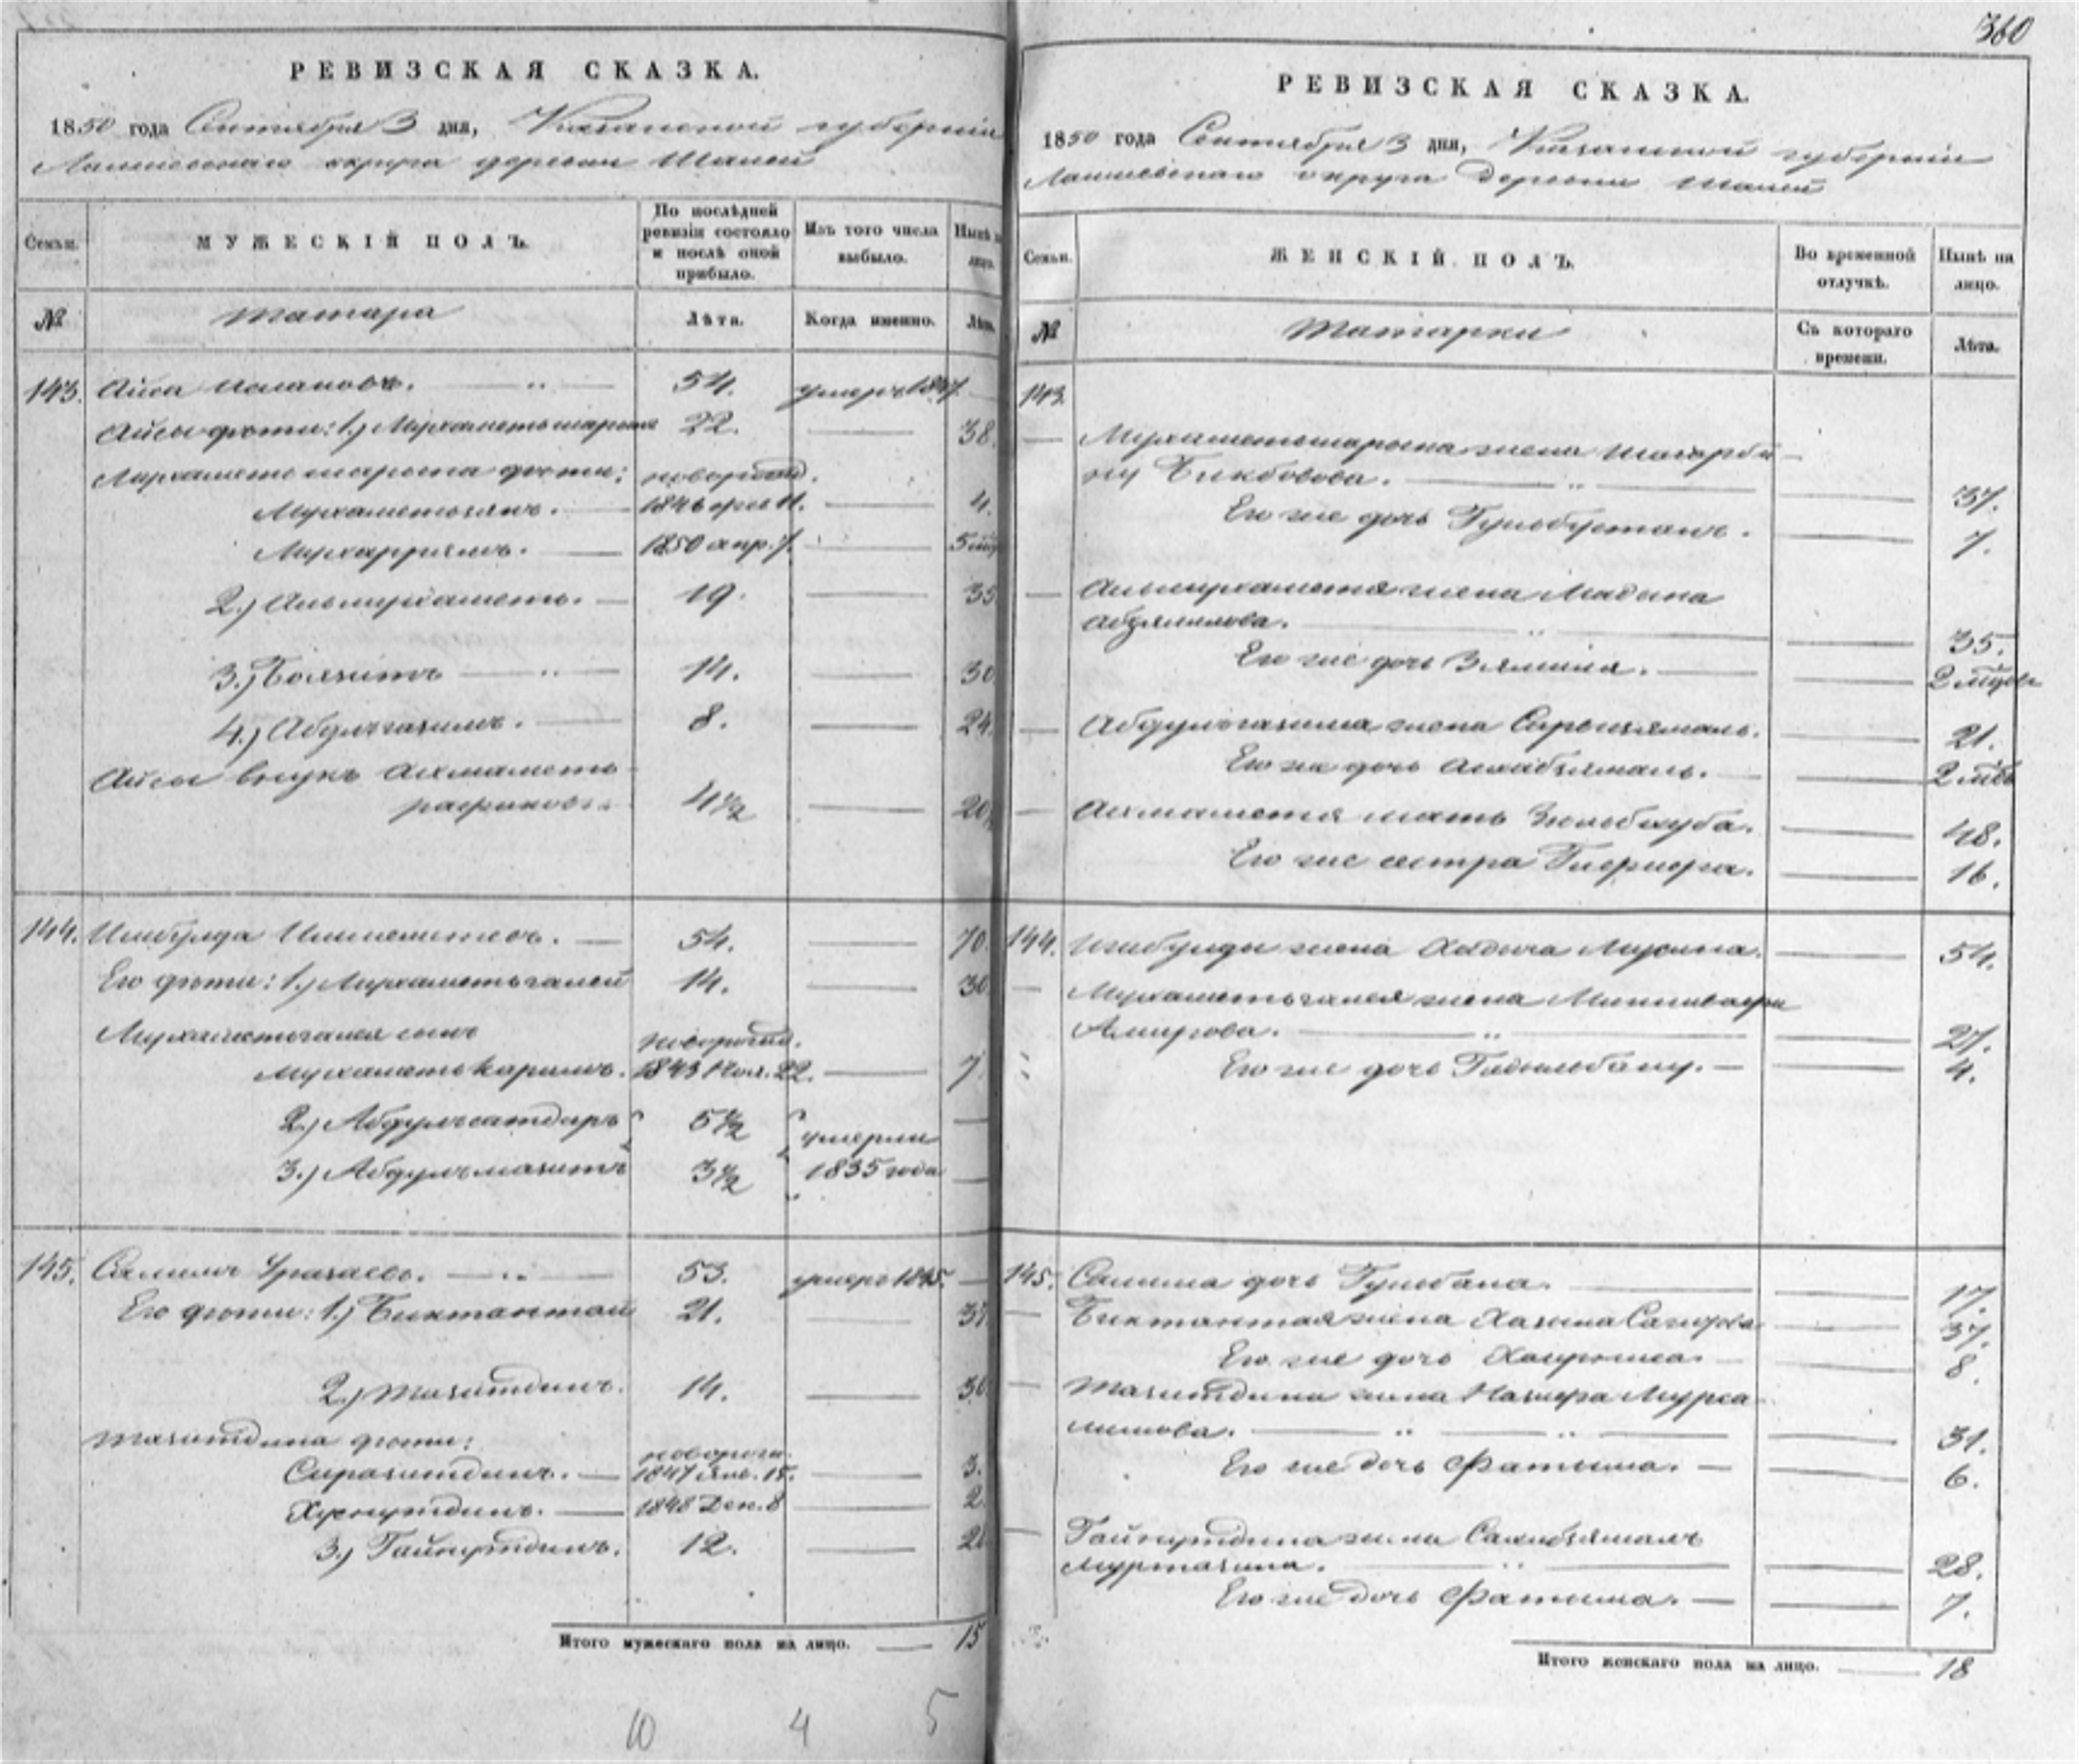 РЕВИЗСКАЯ СКАЗКА.
1850 года Сентября 3 дня, Казанской губернии
Лаишевскаго округа деревни Шалей
Семьи.
МУЖЕСКІЙ ПОЛЪ.
По послѣдней ревизіи состояло и послѣ оной прибыло.
Изъ того числа выбыло.
Нынѣ на лицо.
№
Татара
Лѣта.
Когда именно.
Лѣта.
143. Айса 54. умеръ 1847.
Айсы дѣти: 1.) Мухаметьшарыпъ 22. 38.
Мухаметьшарыпа дѣти: новорожд.
Мухаметьзянъ. 1846 11. 4.
Мухаррямъ. 1850 апр. 7. 5 мцов
2.) Альмухаметь. 19. 35
3.) Баязитъ 14. 30
4.) Абдулгазимъ. 8. 24.
Айсы внукъ Ахмаметь
рафиковъ 4½ 20½
144. Ишбулда Ишменитевъ. 54. 70.
Его дѣти: 1.) Мухаметьгалей 14. 30
Мухаметьгалея сынъ новорожд.
Мухаметькаримъ. 1843 Ноя. 22. 7.
2.) Абдулсатдаръ 5½ умерли
3.) Абдулмазитъ 3½ 1835 года
145. Салимъ Уразаевъ. 53. умеръ 1845.
Его дѣти: 1.) Биктантай 21. 37
2.) Тазитдинъ. 14. 30
Тазитдина дѣти: новорож.
Сиразитдинъ. 1847 Янв. 15. 3.
Хуснутдинъ. 1848 Дек. 8 2
3.) Гайнутдинъ. 12. 28
Итого мужескаго пола на лицо. 15
10 4 5
360
РЕВИЗСКАЯ СКАЗКА.
1850 года Сентября 3 дня, Казанской губерніи
Лаишевскаго округа деревни Шалей
Семьи.
ЖЕНСКІЙ ПОЛЪ.
Во временной отлучкѣ.
Нынѣ на лицо.
№
Татарки
Съ котораго времени.
Лѣта.
143.
Мухаметьшарыпа жена Шагарба
ну Бикбовова. 37.
Его же дочь Гульбустанъ. 7.
Альмухаметя жена Мадина
Абзялилова. 35.
Его же дочь Зямиля. 2 мцовъ
Абдулгазима жена 21.
Его же дочь Асхабзямаль. 2 мцов
Ахмаметя мать 48.
Его же сестра 16.
144. Ишбулды жена Хадича Мусина. 54.
Мухаметьгалея жена
Амирова. 27.
Его же дочь Гадильбану. 4.
145. Салима дочь Гульбана. 17.
Биктантая жена Хазима Сагирова. 37.
Его же дочь 8.
Тазитдина жена Назира Мурса
лимова. 31.
Его же дочь Фатыма. 6.
Гайнутдина жена Сахибзямалъ
Муртазина. 28.
Его же дочь Фатыма. 7.
Итого женскаго пола на лицо. 18